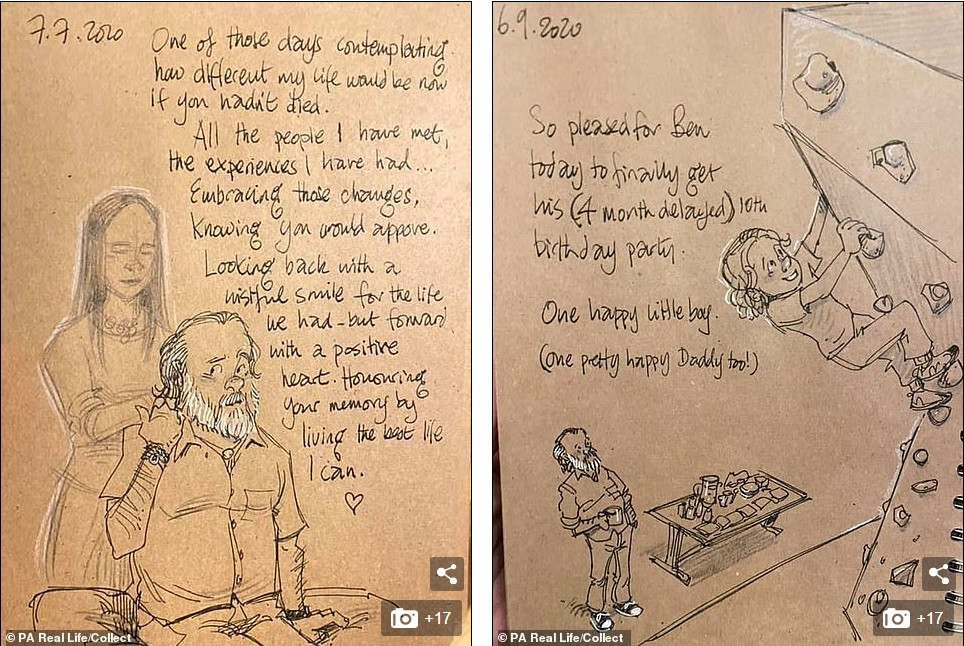 7.7.2020
One of those days contemplating
how different my life would be now
if you hadn't died.
All the people I have met,
the experiences I have had...
Embracing those changes,
knowing you would appove.
Looking back with a
wistful smile for the life
we had - but forward
with a positive
heart. Honouring
your memory by
living the best life
I can.
+17
© PA Real Life/Collect
6.9.2020
So pleased for Ben
today to finally get
his (4 month delayed) 10th
birthday party.
One happy little boy.
(One pretty happy Daddy too!)
+17
© PA Real Life/Collect